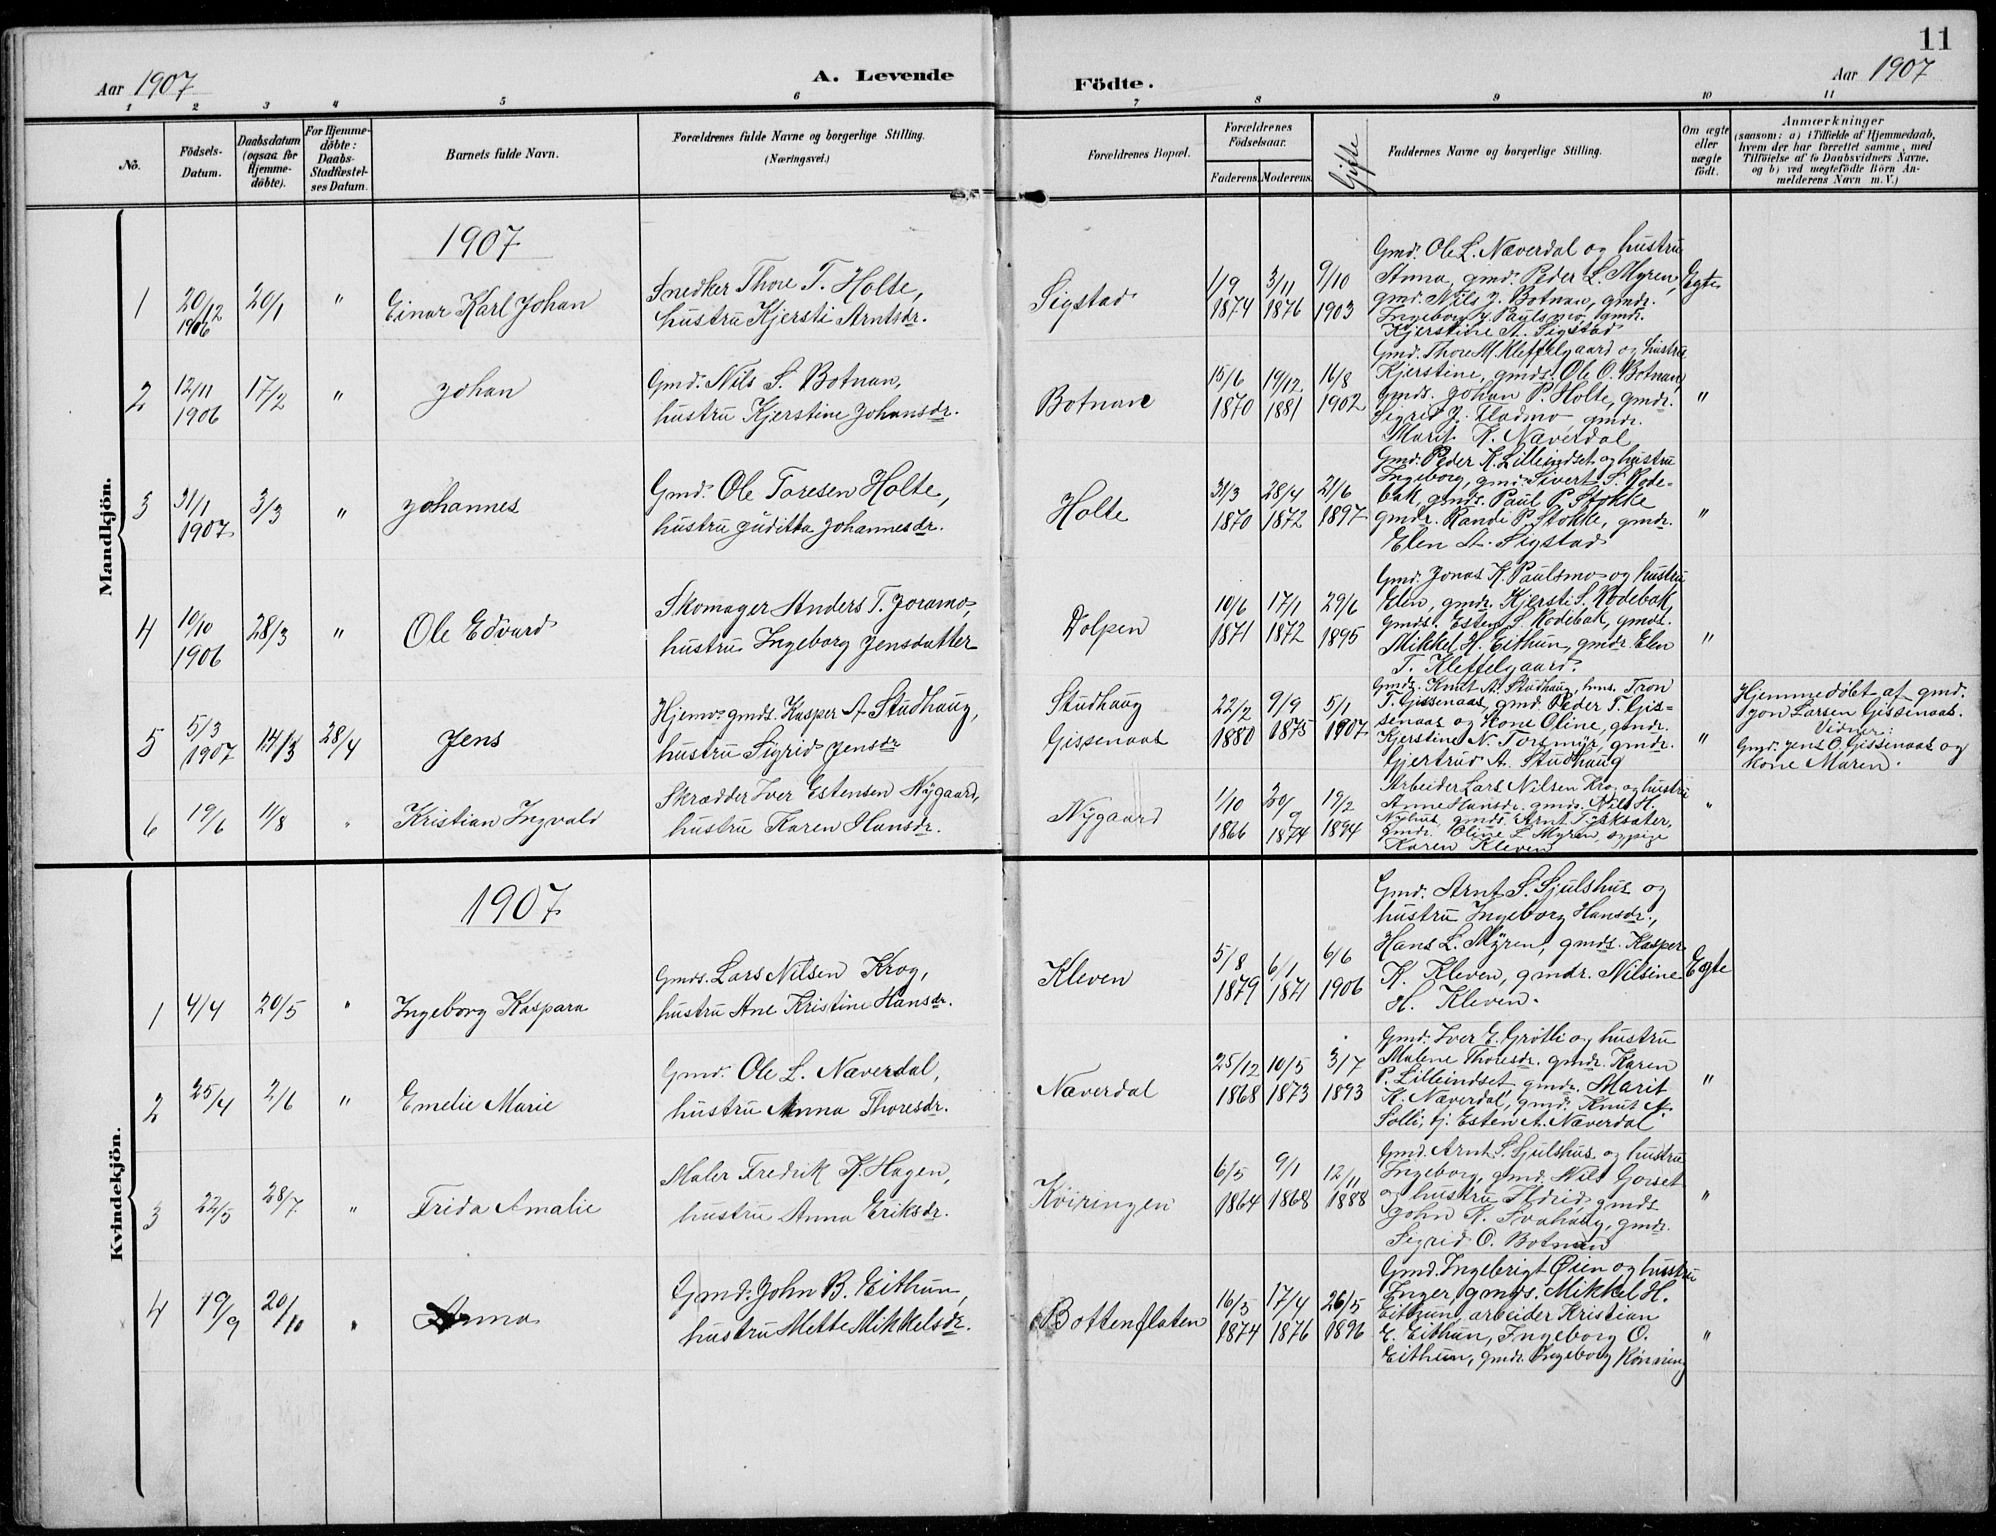 11
Aar 1907
A. Levende
Födte.
Aar 1907
1 2 3 4 5 6 7 8 9 10 11
No.
Födsels-
Datum.
Daabsdatum
(ogsaa for
Hjemme-
döbte).
For Hjemme-
döbte:
Daabs-
Stadfæstel-
ses Datum.
Barnets fulde Navn.
Forældrenes fulde Navne og borgerlige Stilling.
(Næringsvei.)
Forældrenes Bopæl.
Forældrenes
Födselsaar.
Faderens. Moderens.
Gifte
Faddernes Navne og borgerlige Stilling.
Om ægte
eller
uægte
födt.
Anmærkninger
(saasom: a) i Tilfælde af Hjemmedaab,
hvem der har forrettet samme, med
Tilföielse af to Daabsvidners Navne.
og b) ved uægtefödte Börn An-
melderens Navn m. V.)
Mandkjön.
1907
1 20/12 1906 20/1 " Einar Karl Johan
Snedker Thore T. Holte,
hustru Kjersti Arntsdr.
Sigstad
1/9 1874 3/11 1876 9/10 1903
Gmd. Ole L. Næverdal og hustru
Anna, gmd. Peder L. Myren,
gmd. Nils J. Botnan, gmdr.
Ingeborg J. Paulsmo, gmdr.
Kjerstine A. Sigstad
Egte
2 12/11 1906 17/2 " Johan
Gmd. Nils S. Botnan,
hustru Kjerstine Johansdr.
Botnan
15/6 1870 19/12 1881 16/8 1902
Gmd. Thore M. Kleffelgaard og hustru
Kjerstine, gmds. Ole O. Botnan,
gmds. Johan P. Holte, gmdr.
Sigrid J. Fladmo, gmdr.
Marit K. Næverdal
"
3 31/1 1907 3/3 " Johannes
Gmd. Ole Toresen Holte,
hustru Juditta Johannesdr.
Holte
31/3 1870 28/4 1872 21/6 1897
Gmd. Peder K. Lilleindset og hustru
Ingeborg, gmd. Sivert S. Rode-
bak, gmds. Paul P. Stokke
gmdr. Rande P. Stokke, gmdr.
Elen A. Sigstad
"
4 10/10 1906 28/3 " Ole Edvard
Skomager Anders T. Joramo,
hustru Ingeborg Jensdatter
Dolpen
10/6 1871 17/1 1872 29/6 1895
Gmd. Jonas K. Paulsmo og hustru
Elen, gmdr. Kjersti S. Rodebak,
gmds. Esten S. Rodebak, gmds.
Mikkel H. Eithun, gmdr. Elen
T. Kleffelgaard.
"
5 5/3 1907 14/3 28/4 Jens
Hjemv. gmds. Kasper A Studhaug,
hustru Sigrid Jensdr
Studhaug
Gissenaas
22/2 1880 9/9 1875 5/1 1907
Gmds. Knut A. Studhaug, hms. Tron
T. Gissenaas, gmd. Peder T. Gis-
senaas og Kone Oline, gmdr.
Kjerstine N. Toremyr, gmdr.
Gjertrud A. Studhaug
"
Hjemmedöbt af gmd.
Jon Larsen Gissenaas.
Vidner:
Gmd. Jens O. Gissenaas og
kone Maren.
6 19/6 11/8 " Kristian Ingvald
Skrædder Iver Estensen Nygaard,
hustru Karen Hansdr.
Nygaard
1/10 1866 20/9 1874 19/2 1894
Arbeider Lars Nilsen Krog og hustru
Anne Hansdr. gmds. Nils H.
Nyhus, gmds. Arnt Tysksæter,
gmdr. Oline L. Myren, og pige
Karen Kleven
"
Kvindekjön.
1907
1 4/4 20/5 " Ingeborg Kaspara
Gmds. Lars Nilsen Krog,
hustru Ane Kristine Hansdr.
Kleven
5/8 1879 6/1 1871 6/6 1906
Gmd. Arnt S. Sjulshus og
hustru Ingeborg Hansdr.,
Hans L. Myren, gmds. Kasper
K. Kleven, gmdr. Nilsine
H. Kleven.
Egte
2 25/4 2/6 " Emelie Marie
Gmd. Ole L. Næverdal,
hustru Anna Thoresdr.
Næverdal
25/12 1868 10/5 1873 3/7 1893
Gmd. Iver E. Grötli og hustru
Malene Thoresdr. gmdr. Karen
P. Lilleindset gmdr. Marit
K. Næverdal, gmd. Knut A.
Solli, tj. Esten A. Næverdal
"
3 22/5 28/7 " Frida Amalie
Maler Fredrik K. Hagen,
hustru Anna Eriksdr.
Kvirringen
6/5 1864 9/1 1868 12/11 1888
Gmd. Arnt S. Sjulshus og hustru
Ingeborg, gmd. Nils Gorset
og hustru Ildrid, gmds.
John K. Svahaug, gmdr.
Sigrid O. Botnan
"
4 19/9 20/10 " Anna
Gmd. John B. Eithun,
hustru Mette Mikkelsdr.
Bottenflaten
16/3 1874 17/4 1876 26/5 1896
Gmd. Ingebrigt Øien og hustru
Inger, gmds. Mikkel H.
Eithun, arbeider Kristian
E. Eithun, Ingeborg O.
Eithun, gmdr. Ingeborg Rönning
"